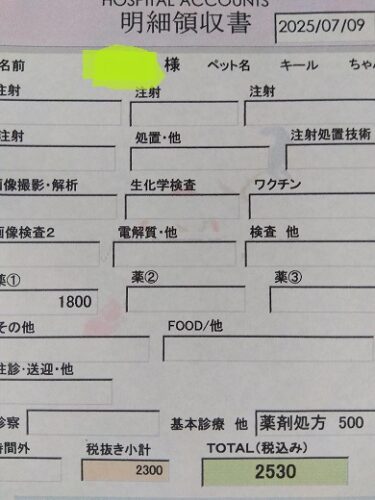 HOSPITAL ACCOUNTS
明細領収書 2025/07/09
名前 様 ペット名 キール ちゃん
注射 注射 注射
注射 処置・他 注射処置技術
画像撮影・解析 生化学検査 ワクチン
画像検査2 電解質・他 検査 他
薬① 薬② 薬③
1800
その他 FOOD/他
往診・送迎・他
診察 基本診療 他 薬剤処方 500
時間外 税抜き小計 TOTAL(税込み)
2300 2530